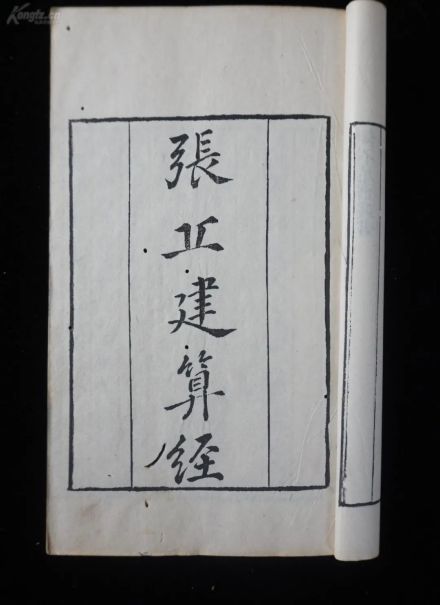 Kongfz.cn
張丘建算経